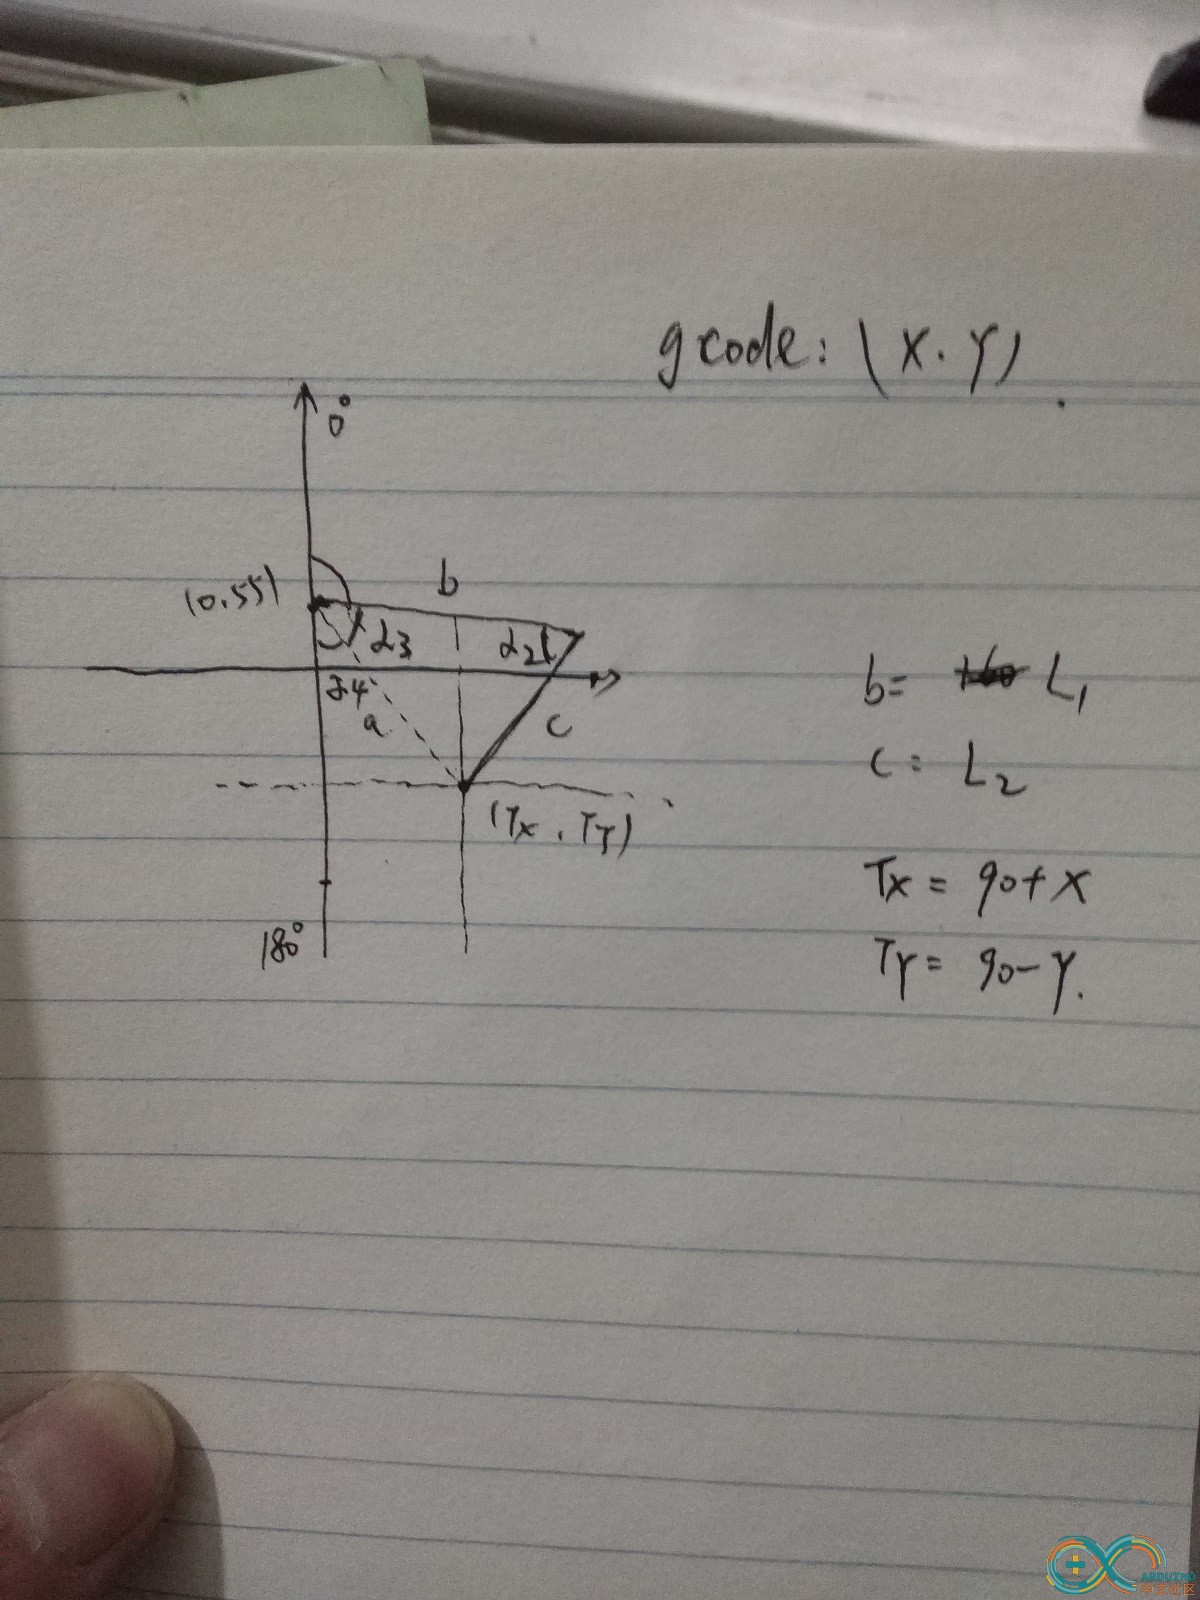 gcode: (X.Y)
0°
(0.55)
b
α3
α2
α4
a
c
(Tx, Ty)
180°
b= L1
c= L2
Tx = 90+X
TY= 90-Y.
ARDUINO